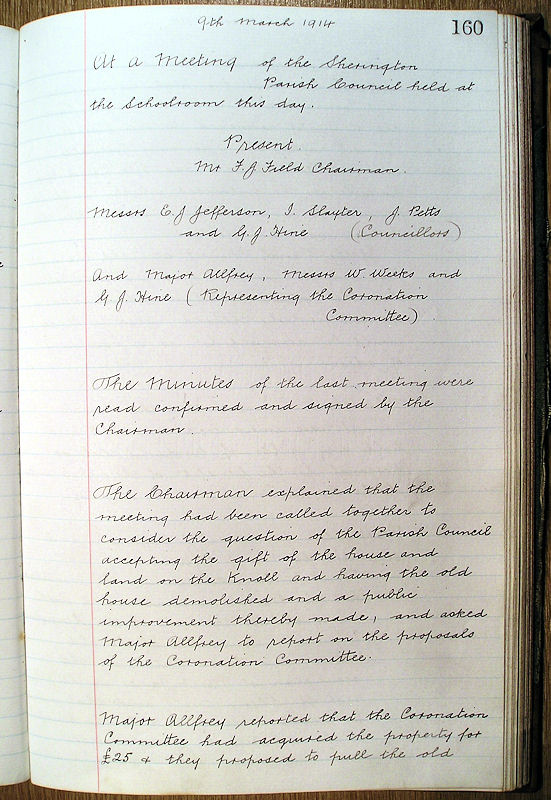 9th March 1914
160
At a Meeting of the Sherington
Parish Council held at
the Schoolroom this day.
Present.
Mr F. J Field Chairman.
Messrs E. J Jefferson, I. Slayter, J. Petts
and G. J. Hine (Councillors)
And Major Allfrey, Messrs W Weeks and
G J. Hine (Representing the Coronation
Committee)
The Minutes of the last meeting were
read confirmed and signed by the
Chairman.
The Chairman explained that the
meeting had been called together to
consider the question of the Parish Council
accepting the gift of the house and
land on the Knoll and having the old
house demolished and a public
improvement thereby made, and asked
Major Allfrey to report on the proposals
of the Coronation Committee.
Major Allfrey reported that the Coronation
Committee had acquired the property for
£25 & they proposed to pull the old